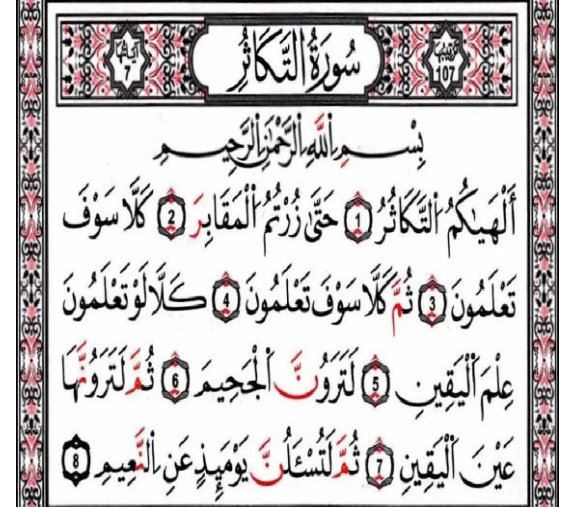 آيَاتُهَا 7 سُورَةُ التَّكَاثُرِ تَرْتِيبُهَا 107
بِسْمِ اِ۬للَّهِ اِ۬لرَّحْمَٰنِ اِ۬لرَّحِيمِ
أَلْهَيٰكُمُ اُ۬لتَّكَاثُرُ 1 حَتَّىٰ زُرْتُمُ اُ۬لْمَقَابِرَ 2 كَلَّا سَوْفَ
تَعْلَمُونَ 3 ثُمَّ كَلَّا سَوْفَ تَعْلَمُونَ 4 كَلَّا لَوْ تَعْلَمُونَ
عِلْمَ اَ۬لْيَقِينِ 5 لَتَرَوُنَّ اَ۬لْجَحِيمَ 6 ثُمَّ لَتَرَوُنَّهَا
عَيْنَ اَ۬لْيَقِينِ 7 ثُمَّ لَتُسْـَٔلُنَّ يَوْمَئِذٍ عَنِ اِ۬لنَّعِيمِ 8